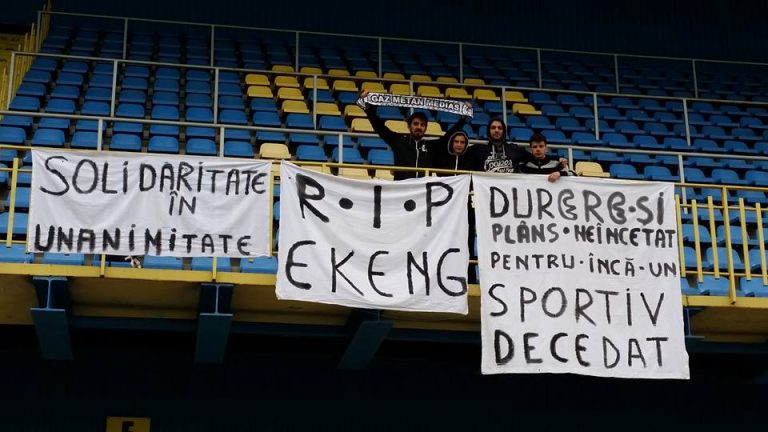 GAZ METAN MEDIAS
SOLIDARITATE
ÎN
UNANIMITATE
R•I•P
EKENG
DURERE•ȘI
PLÂNS•NEÎNCETAT
PENTRU•ÎNCĂ•UN
SPORTIV
DECEDAT